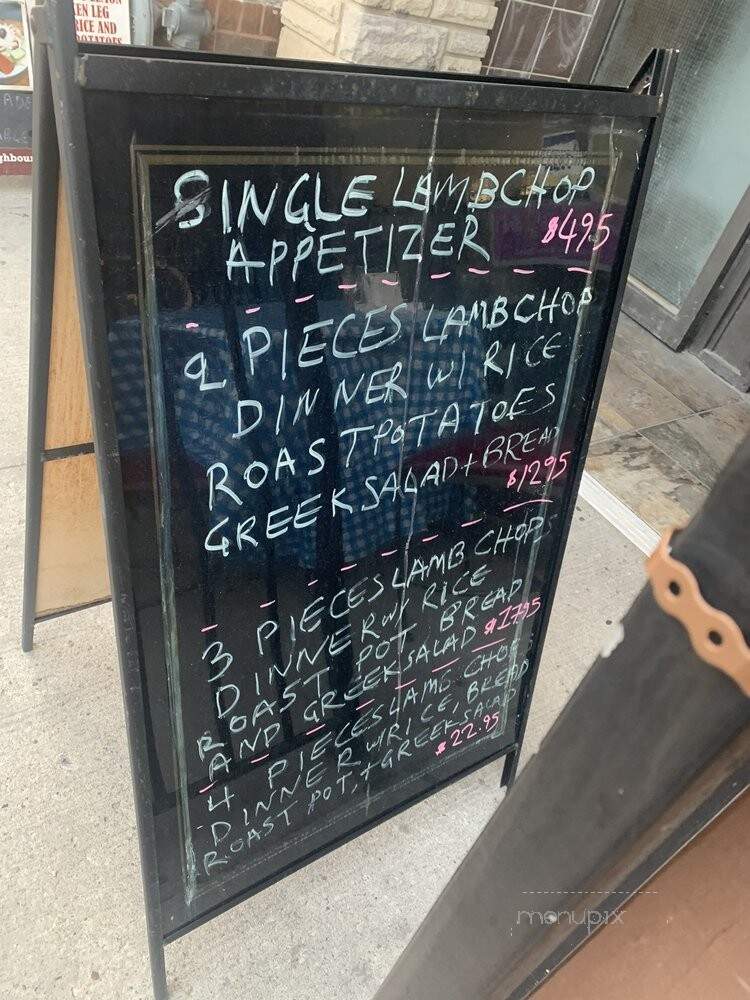 EN LEG
RICE AND
POTATOES
SINGLE LAMBCHOP
APPETIZER $495
2 PIECES LAMBCHOP
DINNER W/ RICE
ROAST POTATOES
GREEK SALAD + BREAD
$1295
3 PIECES LAMB CHOPS
DINNER W/ RICE
ROAST POT. BREAD
AND GREEK SALAD $1795
4 PIECES LAMB CHOPS
DINNER W/RICE, BREAD
ROAST POT, + GREEK SALAD
$22.95
menupix